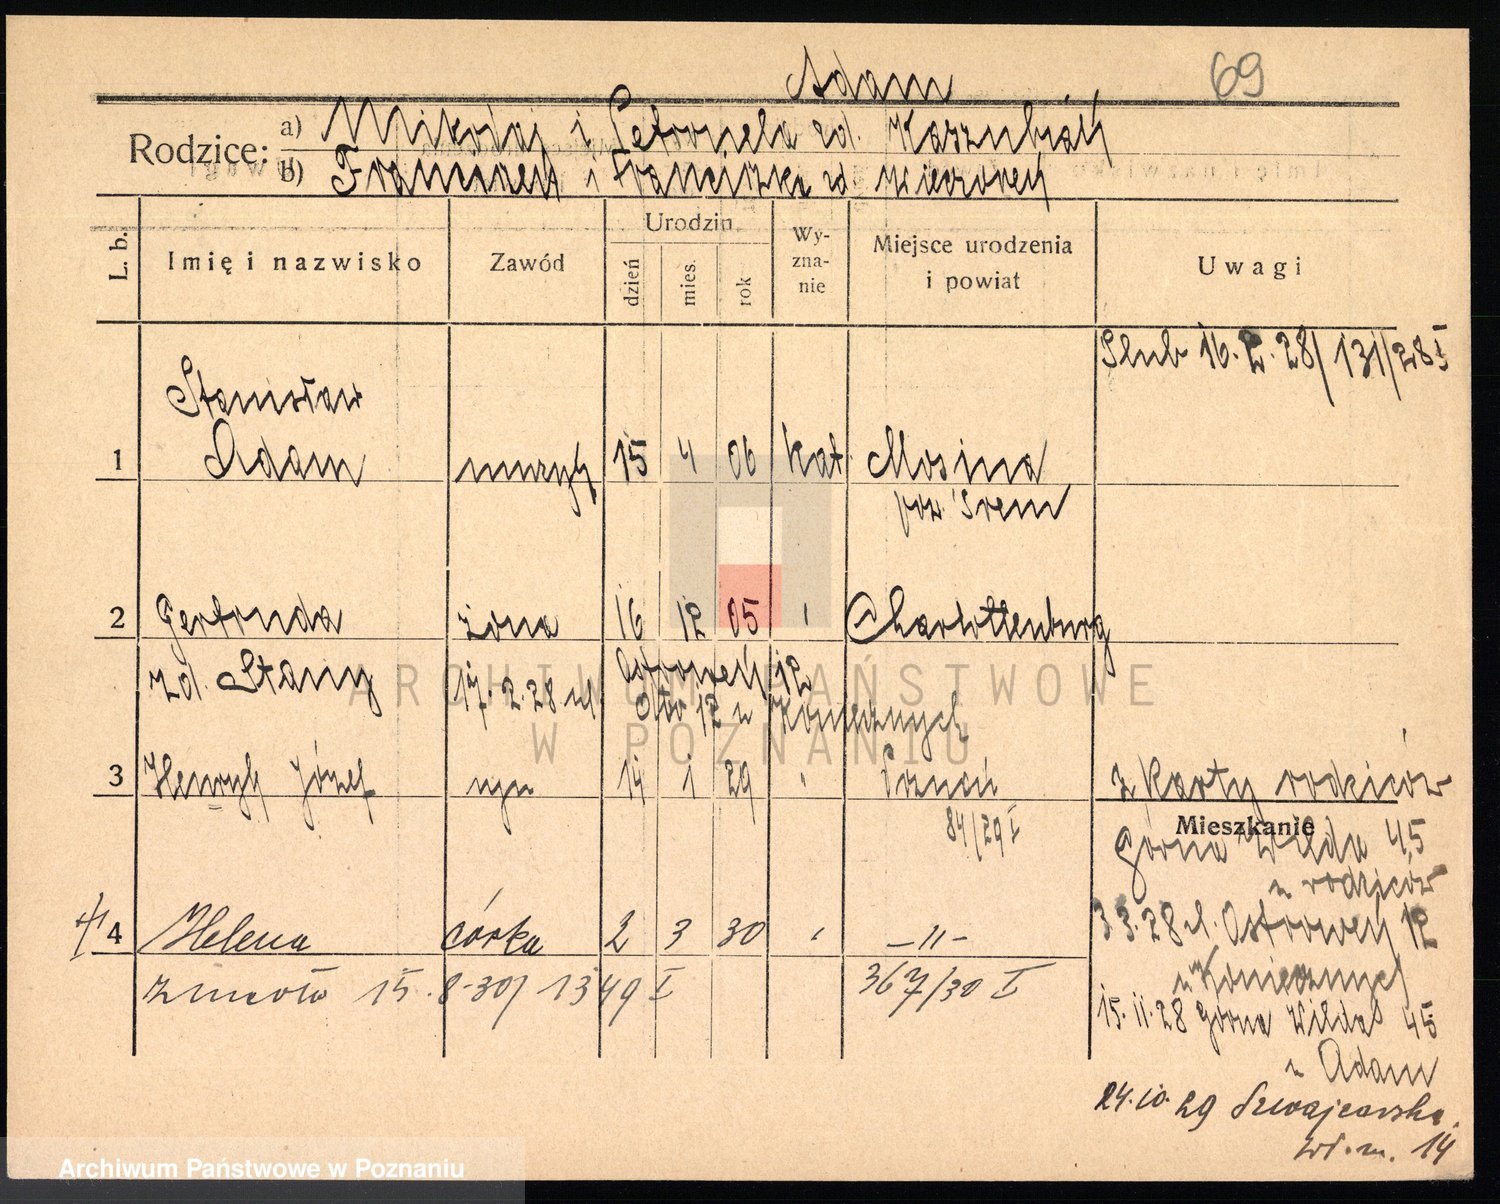 Adam
69
Rodzice:
a) Mikołaj i Petronela zd. Kaszubiak
b) Franciszek i Franciszka zd. Wieczorek
L. b.
Imię i nazwisko
Zawód
Urodzin
dzień
mies.
rok
Wy-
zna-
nie
Miejsce urodzenia
i powiat
Uwagi
Ślub 16. 2. 28/131/28 I
Stanisław
1 Adam murzyk 15 4 06 kat Mosina
pow. Śrem
2 Gertruda żona 16 12 05 " Charlottenburg
zd. Stany 17. 2. 28 ul. Ostrowek 12
12 u Koniecznych
3 Henryk Józef syn 14 1 29 " Poznań
84/29 I
z karty rodziców
Mieszkanie
Górna Wilda 45
u rodziców
3. 3. 28 ul. Ostrowek 12
u Koniecznych
15. 11. 28 Górna Wilda 45
u Adam
24. 10. 29 Szwajcarska
wł. m. 14
4 Helena córka 2 3 30 " -"-
zmarła 15. 8. 30/1349 I
367/30 I
ARCHIWUM PAŃSTWOWE
W POZNANIU
Archiwum Państwowe w Poznaniu